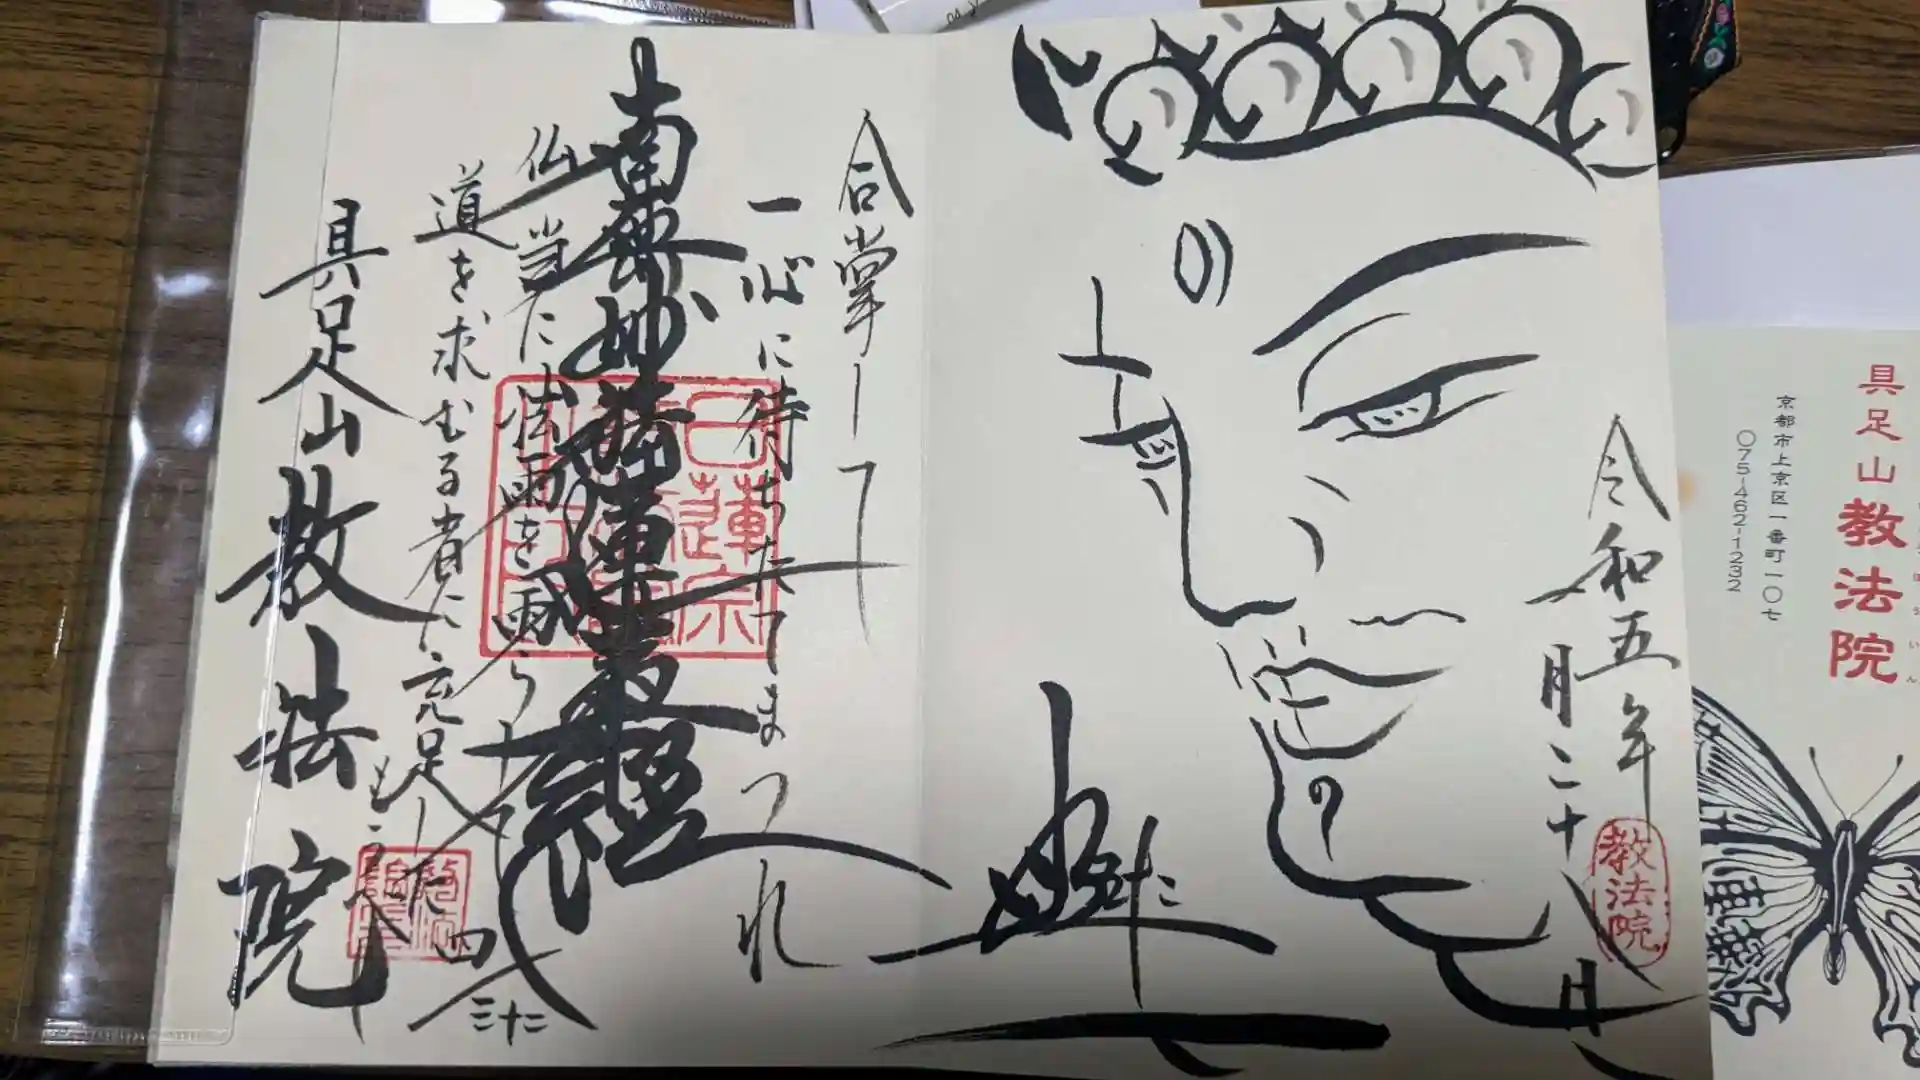 具足山
教法院
京都市上京区一番町一〇七
〇75-462-1232
令和五年
月二十八日
教法院
合掌して
一心に待ちたてまつれ
南無妙法蓮華経
仏当に法雨を雨らして
道を求むる者に充足したもうべし
日蓮宗
具足山
教法院